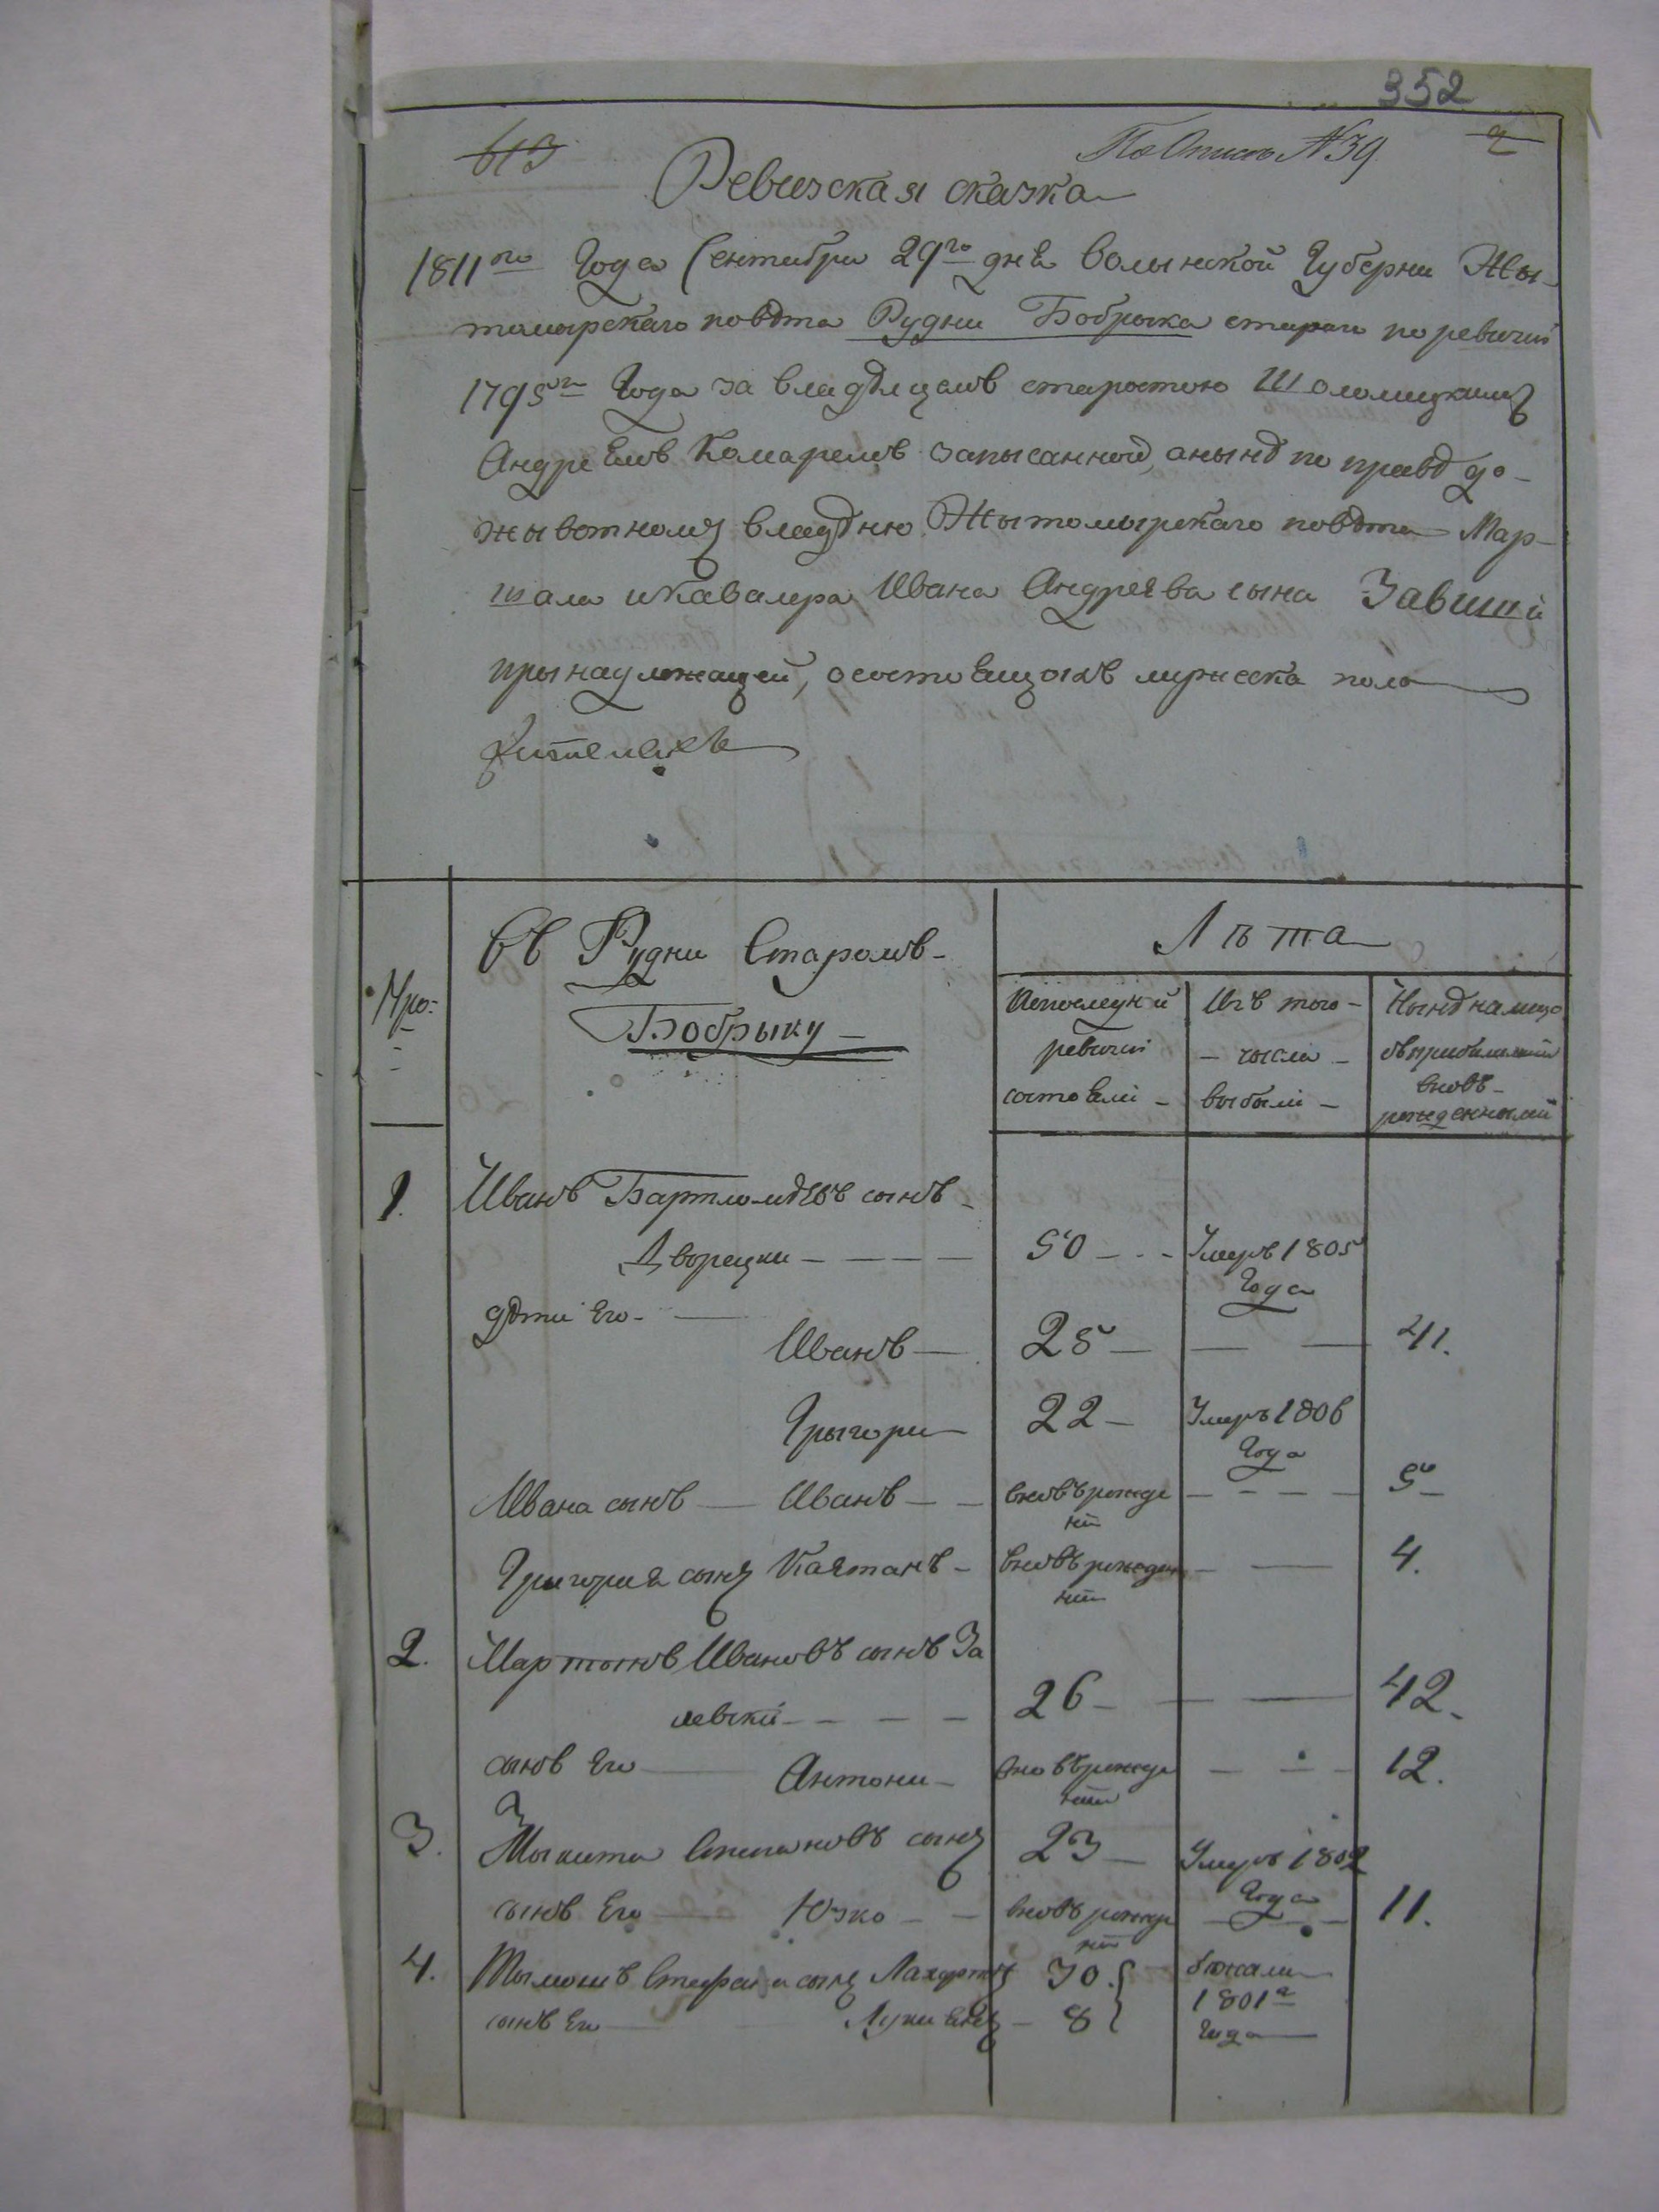 352
613
По Описѣ №39
2
Ревизская сказка
1811го Года Сентября 29го дня Волынской Губерни Жы-
томырскаго повѣта Рудни Бобрыка стараго по ревизіи
1795го Года за владѣлцемъ старостою Шоломицкимъ
Андреемъ запысанной, анынѣ по правѣ до-
жывотному владѣнію Жытомырскаго повѣта Мар-
шала икавалера Ивана Андреева сына Завиши
прынадлежащей, осостоящыхъ мужеска пола
жителяхъ
Нро:
Въ Рудни Старомъ-
Бобрыку
Лѣта
Ипоследней
ревизіи
состояли
Изъ того-
- числа -
выбыли -
Нынѣ налицо
съприбылыми
вновь-
рожденными
1.
Иванъ Бартломѣевъ сынъ
Дворецки
50
Умеръ 1805
Года
дѣти Его
Иванъ
25
41.
Грыгори
22
Умеръ 1806
Года
Ивана сынъ Иванъ
вновь рожде
ній
5
Григорія сынъ Каятанъ
вновь рожден
ній
4.
2.
Мартынъ Ивановъ сынъ За
левски
26
42
сынъ Его Антони
вновь рожде
ній
12.
3.
Мыкита Степановъ сынъ
23
Умеръ 1802
Года
сынъ Его Юзко
вновь рожде
ній
11.
4.
Тымошъ Стефана сынъ
30
бежали
1801г
Года
сынъ Его Лукиянъ
8